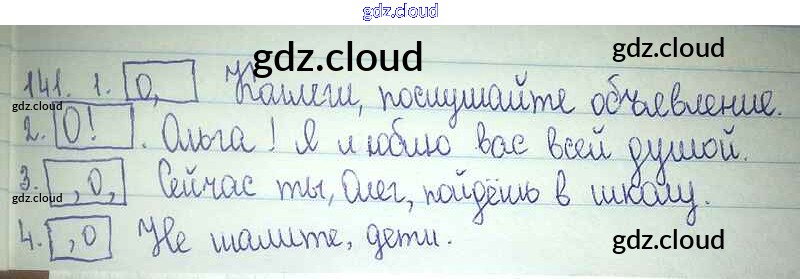 gdz.cloud
gdz.cloud gdz.cloud
141. 1. О, Коллеги, послушайте объявление.
gdz.cloud
2. О! . Ольга! Я люблю вас всей душой.
3. , О, Сейчас ты, Олег, пойдёшь в школу.
gdz.cloud
4. , О Не шалите, дети.
gdz.cloud gdz.cloud